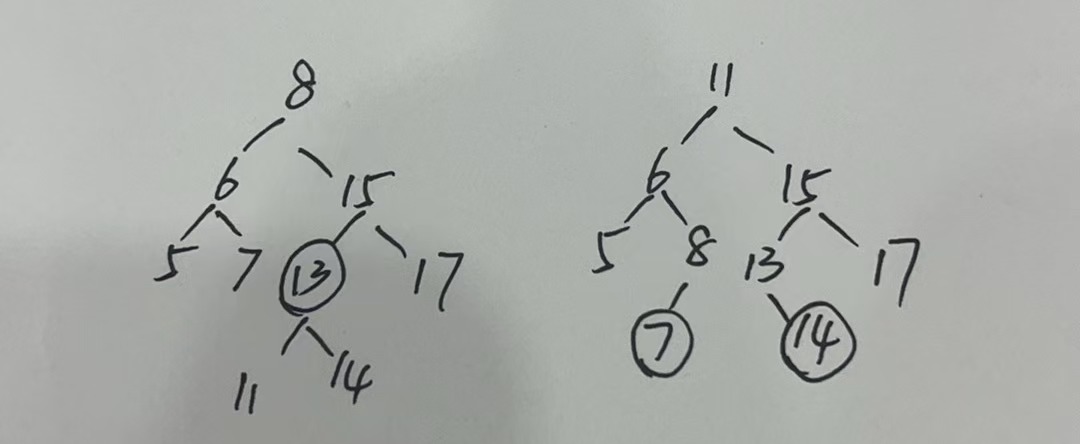 8
6 15
5 7 13 17
11 14
11
6 15
5 8 13 17
7 14